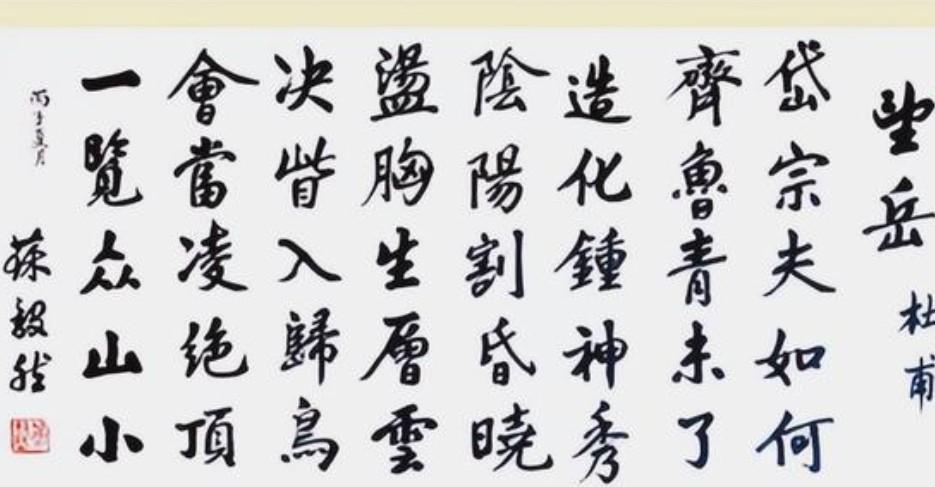 望岳
杜甫
岱宗夫如何
齊魯青未了
造化鍾神秀
陰陽割昏曉
盪胸生層雲
决眥入歸鳥
會當凌绝頂
一覽众山小
丙子夏月
蔡毅然